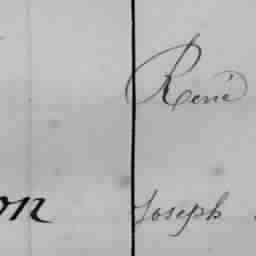 René
on Joseph